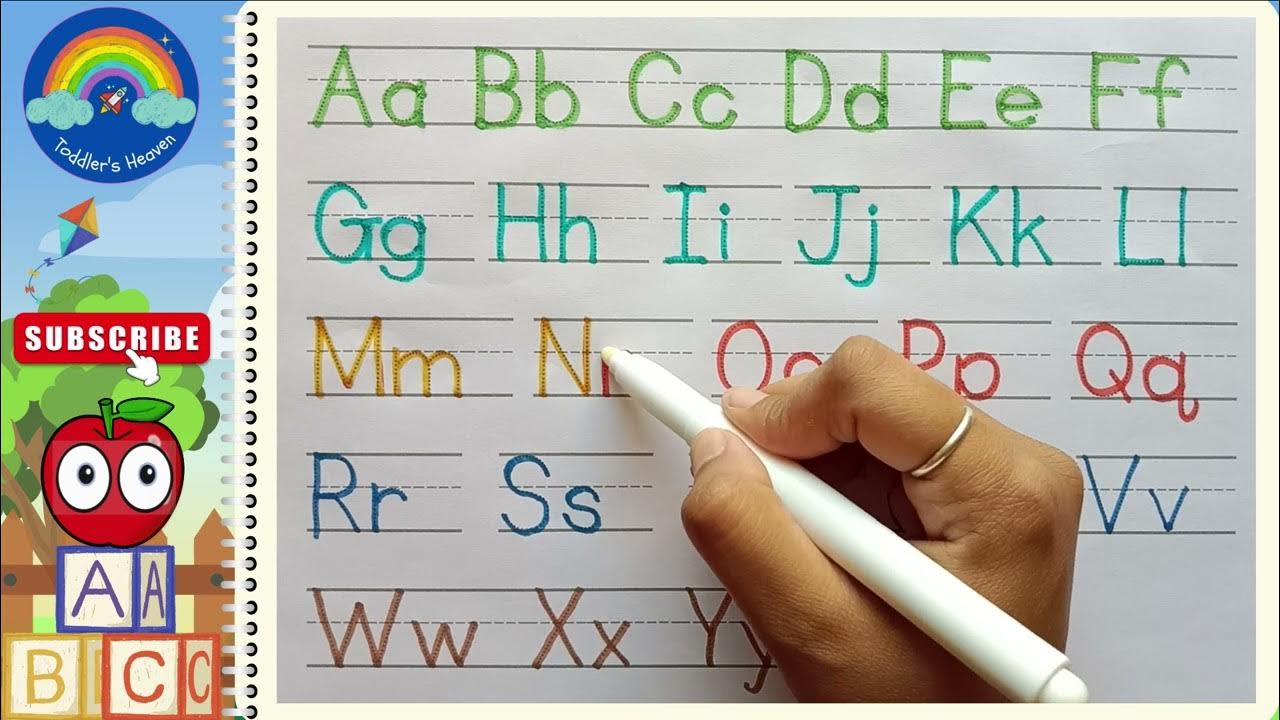 Toddler's Heaven
SUBSCRIBE
A A
B B C C
Aa Bb Cc Dd Ee Ff
Gg Hh Ii Jj Kk Ll
Mm N Oo Pp Qq
Rr Ss Vv
Ww Xx Yy